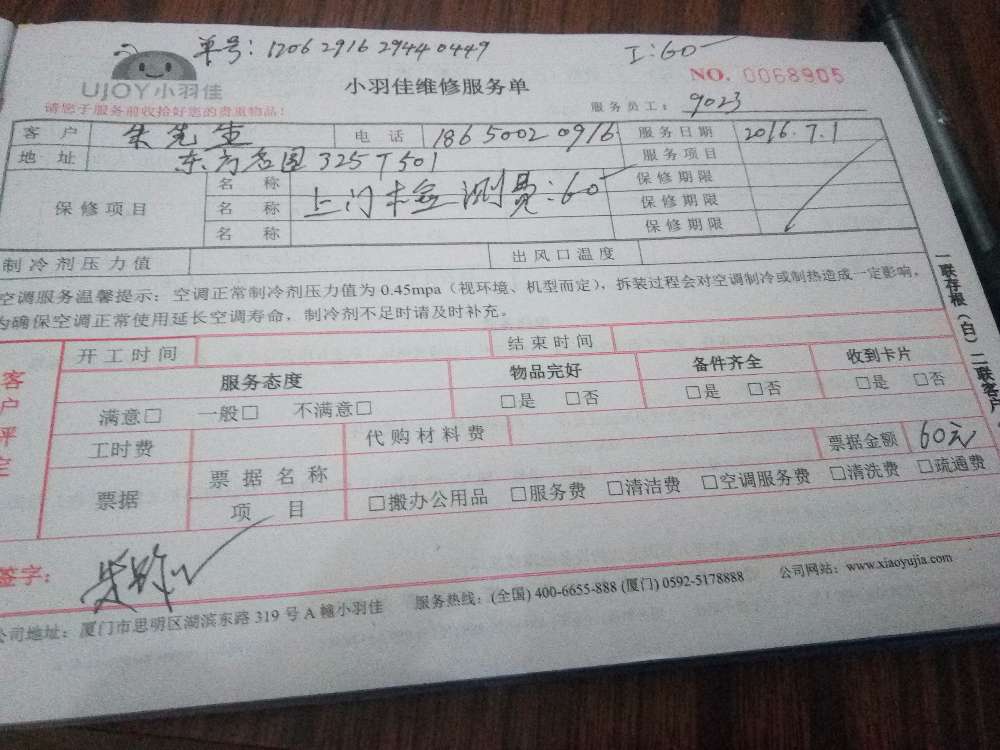 单号: 1206 2916 2944 0449
工:60
UJOY小羽佳
小羽佳维修服务单
NO. 0068905
请您于服务前收拾好您的贵重物品!
服务员工: 9023
客户 朱先生 电话 186 5002 0916 服务日期 2016.7.1
地址 东方名园325T501 服务项目
保修项目 名称 上门检测费:60 保修期限
名称 保修期限
名称 保修期限
制冷剂压力值 出风口温度
空调服务温馨提示: 空调正常制冷剂压力值为0.45mpa(视环境、机型而定),拆装过程会对空调制冷或制热造成一定影响,
为确保空调正常使用延长空调寿命,制冷剂不足时请及时补充。
一联存根(白) 二联客户
客户评定
开工时间 结束时间
服务态度 物品完好 备件齐全 收到卡片
满意□ 一般□ 不满意□ □是 □否 □是 □否 □是 □否
工时费 代购材料费 票据金额 60元
票据 票据名称
项目 □搬办公用品 □服务费 □清洁费 □空调服务费 □清洗费 □疏通费
签字:
公司地址: 厦门市思明区湖滨东路319号A幢小羽佳 服务热线: (全国) 400-6655-888 (厦门) 0592-5178888 公司网站: www.xiaoyujia.com